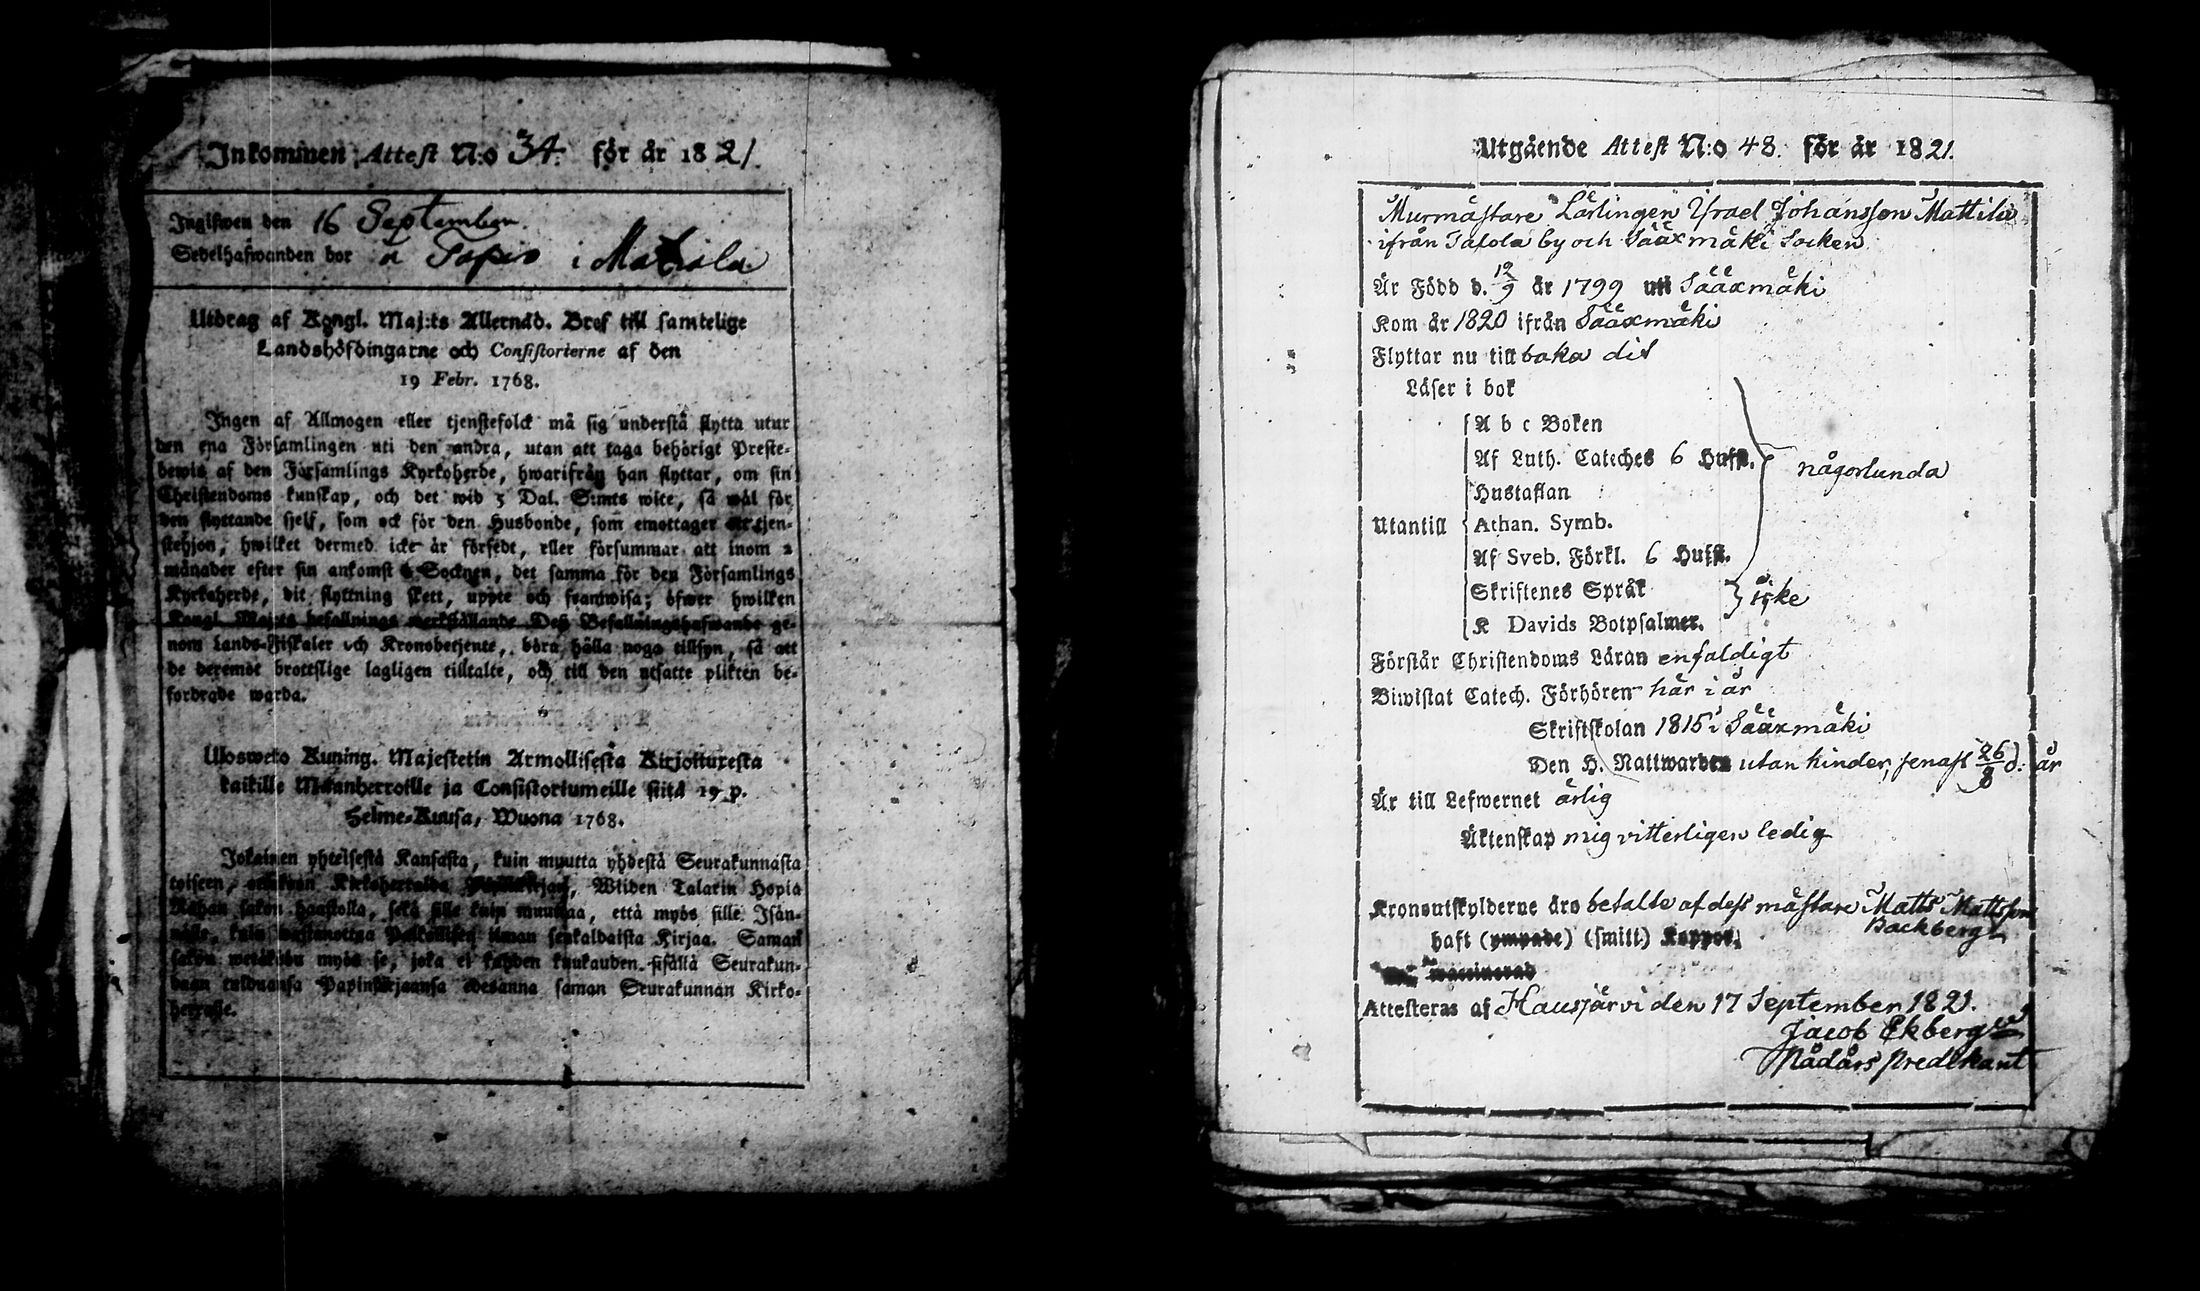 Inkommen Attest N:o 34. för år 1821.
Ingifwen den 16 September.
Sedelhafwanden bor å Sapio i Mattila
Utdrag af Kongl. Maj:ts Allernåd. Bref till samtelige
Landshöfdingarne och Consistorierne af den
19 Febr. 1768.
Ingen af Allmogen eller tjenstefolck må sig understå flytta utur
den ena Församlingen uti den andra, utan att taga behörigt Preste-
bewis af den Församlings Kyrkoherde, hwarifrån han flyttar, om sin
Christendoms kunskap, och det wid 5 Dal. S:mts wite, så wäl för
den flyttande sjelf, som ock för den Husbonde, som emottager et tjen-
stehjon, hwilket dermed icke är försedt, eller försummar att inom 2
månader efter sin ankomst i Socknen, det samma för den Församlings
Kyrkoherde, dit flyttning skett, uppte och framwisa; öfwer hwilken
Kongl. Maj:ts befallnings werkställande Deß Befallningshafwande ge-
nom Lands-Fiskaler och Kronobetjente, böra hålla noga tillsyn, så att
de deremot brottslige lagligen tilltalte, och till den utsatte plikten be-
fordrade warda.
Ulosweto Kuning. Majestetin Armollisesta Kirjoituxesta
kaikille Maanherroille ja Consistoriumeille siitä 19 p.
Helme-Kuusa, Wuona 1768.
Jokainen yhteisestä Kansasta, kuin muutta yhdestä Seurakunnasta
toiseen, Kirkoherralda Wiiden Talarin Hopia
Rahan sakon haastolla, sekä sille kuin muuttaa, että myös sille Isän-
nälle, kuin ilman senkaldaista Kirjaa. Saman
sakon myös se, joka ei kahden kuukauden sisällä Seurakun-
daan tulduansa Papinkirjaansa edesanna saman Seurakunnan Kirko-
herralle.
Utgående Attest N:o 48. för år 1821.
Murmästare Lärlingen Israel Johansson Mattila
ifrån by och Sääxmäki Socken
Är Född d. 12/9 år 1799 uti Sääxmäki
Kom år 1820 ifrån Sääxmäki
Flyttar nu tillbaka dit
Läser i bok
A b c Boken
Af Luth. Cateches 6 Hufst.
någorlunda
Hustaflan
Utantill Athan. Symb.
Af Sveb. Förkl. 6 Hufst.
Skriftenes Språk
icke
K Davids Botpsalmer.
Förstår Christendoms Läran enfaldigt
Biwistat Catech. Förhören här i år
Skriftskolan 1815 i Sääxmäki
Den H. Nattwarden utan hinder, senast 26/8 d. år
Är till Lefwernet ärlig
Äktenskap mig vitterligen ledig
Kronoutskylderne äro betalte af dess mästare Matts Mattsson
Backberg
haft (ympade) (smitt.) Koppor.
waccinerad
Attesteras af Hausjärvi den 17 September 1821.
Jacob Ekberg
Nådårs predikant